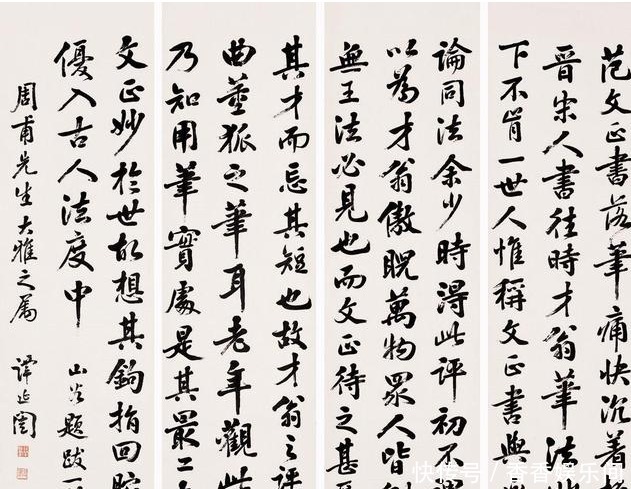 范文正書落筆痛快沉著
晉宋人書往時才翁筆法
下不肯一世人惟稱文正書與
論同法余少時得此評初不
以為才翁傲睨萬物眾人皆
無王法必見也而文正待之甚
其才而忘其短也故才翁之評
曲董狐之筆耳老年觀此
乃知用筆實處是其最工
文正妙於世故想其鉤指回腕
優入古人法度中 山谷題跋一
周甫先生大雅之屬 譚延闓
快传号 / 香香娱乐间